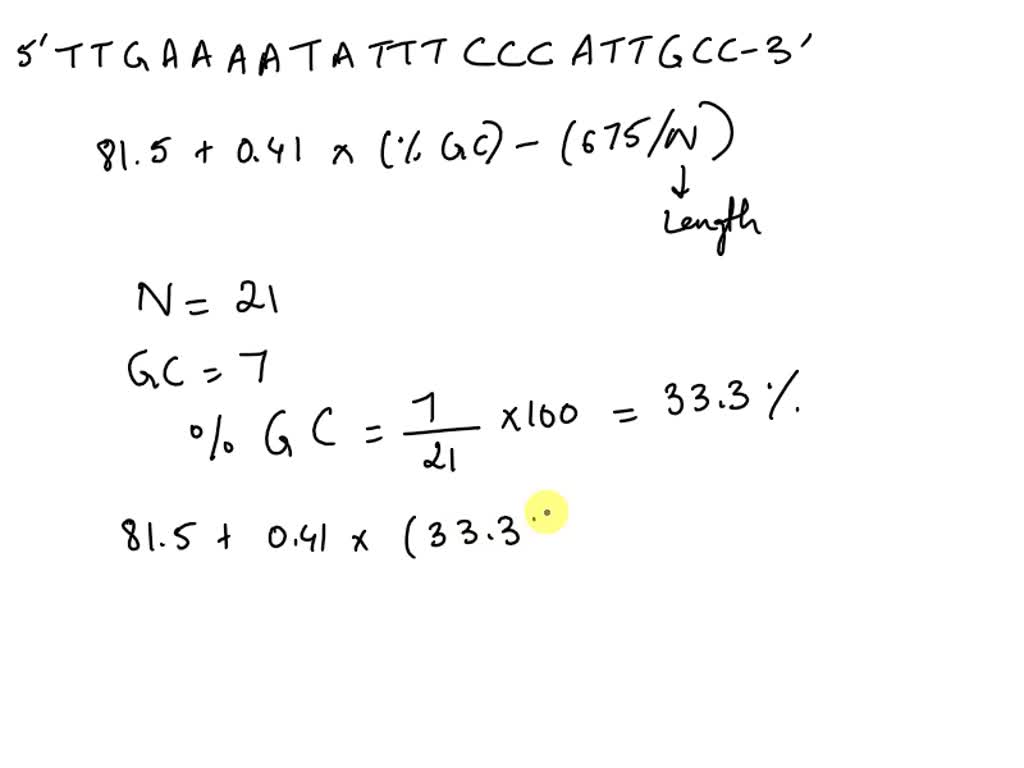 5' T T G A A A A T A T T T C C C A T T G C C - 3'
81.5 + 0.41 × (% GC) - (675/N)
↓
Length
N = 21
GC = 7
% GC = 7/21 × 100 = 33.3 %.
81.5 + 0.41 × (33.3